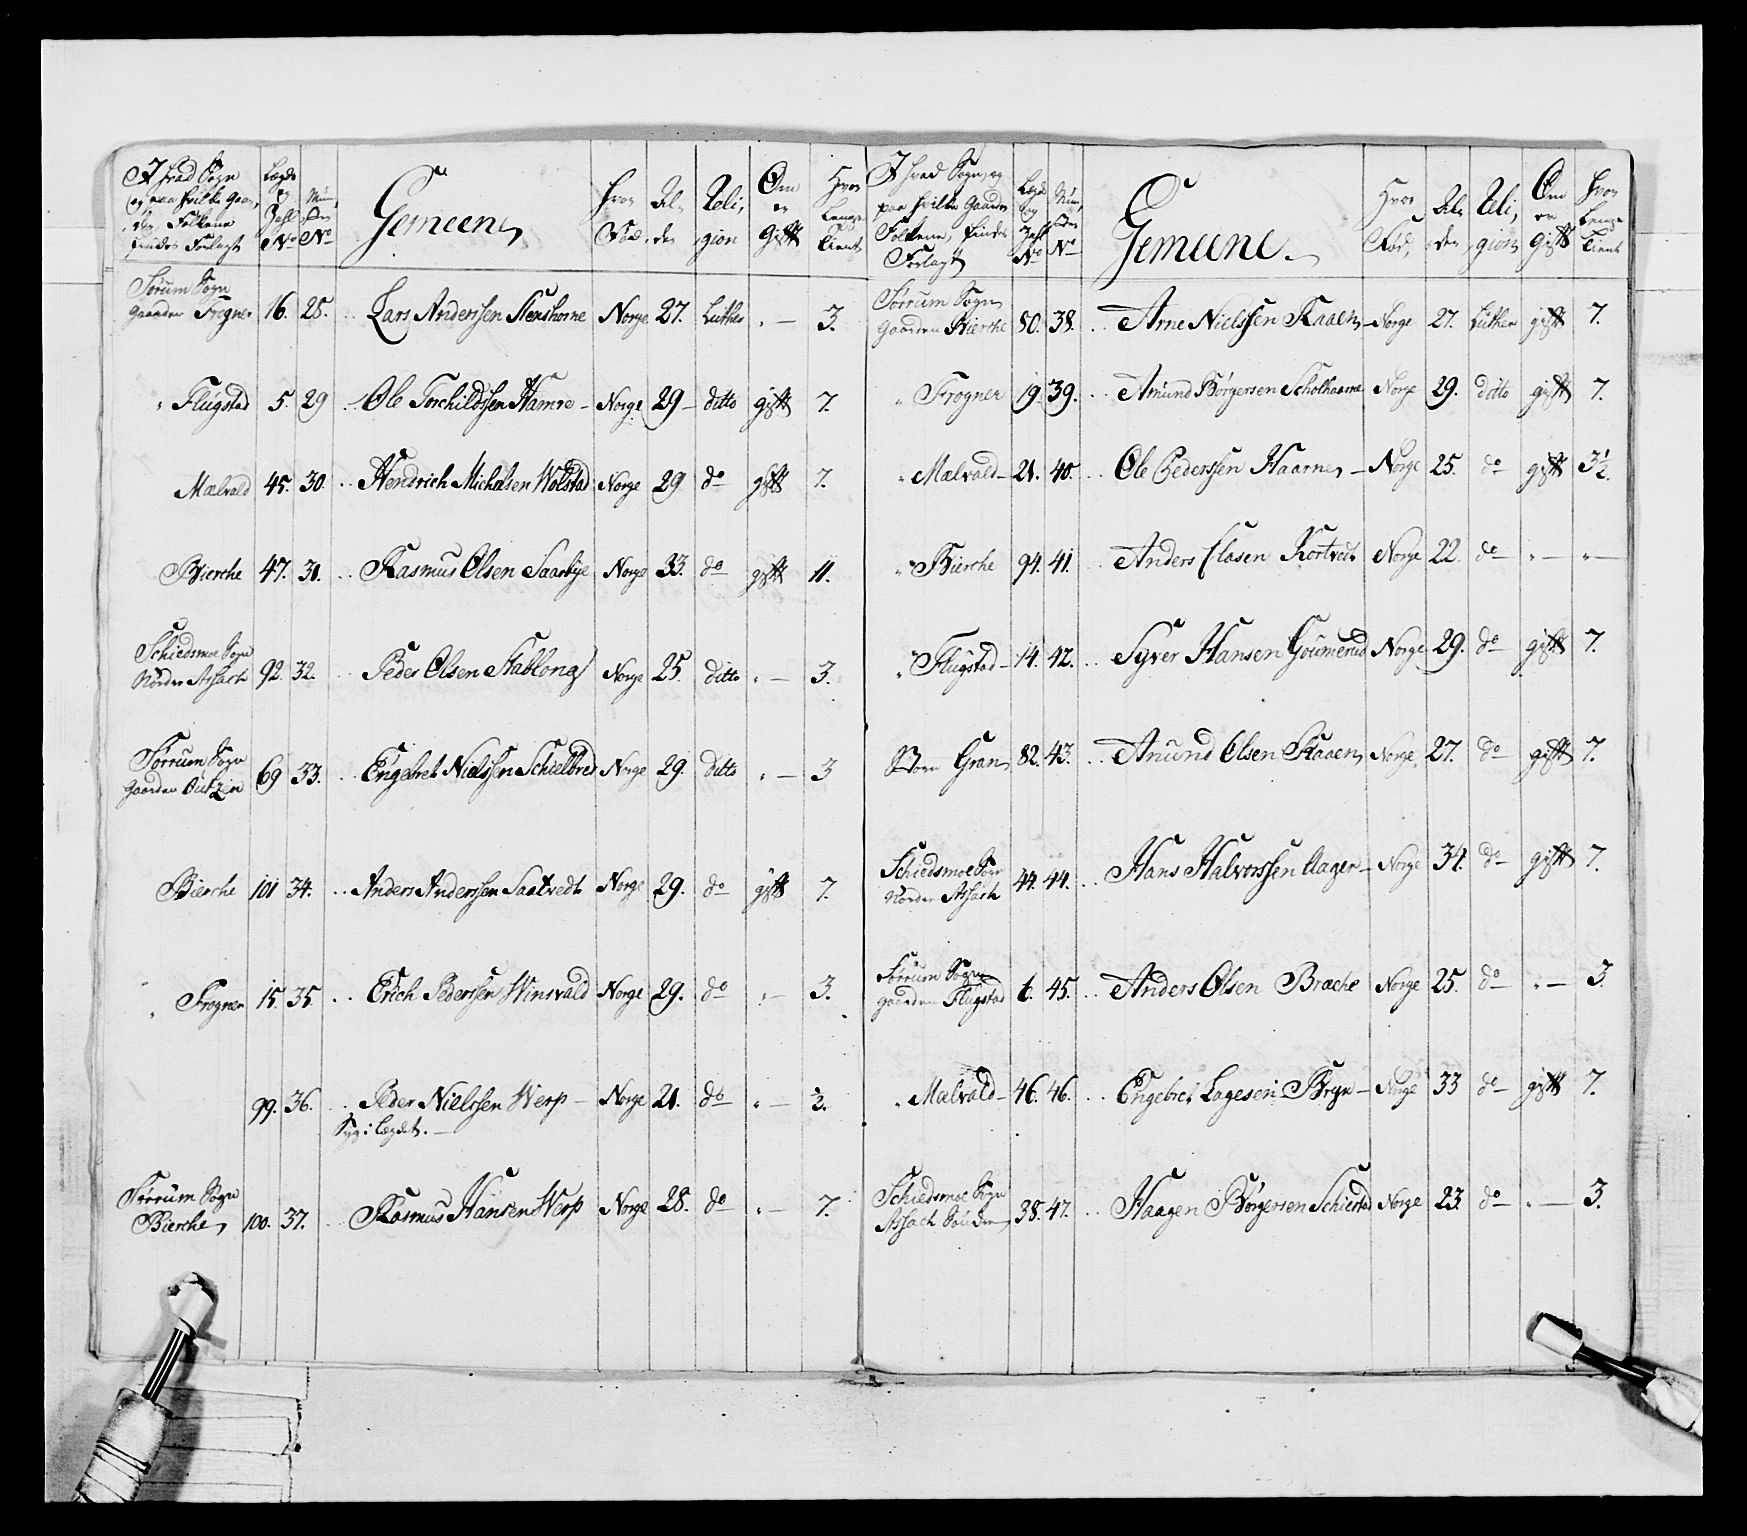 I hvad Sogn og paa hvilke Gaarder, Folkene findes Forlagt | Lægds og Zahl No | Münster No | Gemeene | Hvor Fød. | Alder | Religion | Om er Gift | Hvor Lenge Tient
Sørum Sogn
Gaarden Frogner 16. 28. Lars Anderssen Stenshorne Norge 27. Luther " — 3.
" Flügstad 5. 29 Ole Torchildssen Hamre – Norge 29 – ditto gift 7.
Mælvald 45. 30. Hendrich Michelsen Wolstad Norge 29 do gift 7.
Bierche 47. 31. Rasmus Olsen Saasbye Norge 33. do gift 11.
Schiedsmoe Sogn
Nordre Asach 92. 32. Peder Olsen Stablong Norge 25. ditto " — 3.
Sørrum Sogn
Gaarden 69 33. Engebret Nielssen Schielbred Norge 29. ditto " — 3
Bierche 101 34. Anders Anderssen Saatvedt Norge 29. do gift 7.
" Frogner 15. 35. Erich Pederssen Winsvald Norge 29. do " — 3.
99. 36. Peder Nielssen Werp – Norge 21. do " — ½.
Syg i Lægdet. —
Sørrum Sogn
Bierche, 100. 37. Rasmus Hansen Werp Norge 28. do " — 7.
I hvad Sogn, og paa hvilke Gaarder Folkene, findes Forlagt | Lægds og Zahl No | Münster No | Gemeene. | Hvor Fød, | Alder | Religion | Om er Gift | Hvor Lenge Tient
Sørrum Sogn
Gaarden Bierche 80. 38. Arne Nielssen Kaaen – Norge 27. Luther gift 7.
" Frogner 19. 39. Amund Børgersen Scholhaarne Norge 29. ditto gift 7.
" Mælvald – 21. 40. Ole Pederssen Haarne, – Norge 25. do gift 3½.
" Bierche 94. 41. Anders Clasen Kortvedt Norge 22. do " — " —
" Flügstad – 14. 42. Syver Hansen Goümerud Norge 29. do gift 7.
Gran 82. 43. Amund Olsen Kaaen Norge. 27. do gift 7.
Schiedsmoe Sogn
Nordre Asach 44. 44. Hans Halvorssen Aager – Norge 34. do gift 7.
Sørrum Sogn
gaarden Flügstad 6. 45. Anders Olsen Brache Norge 25. do " — 3.
" Mælvald – 46. 46. Engebret Lagesen Bryn – Norge 33 do gift 7.
Schiedsmoe Sogn
Asach Søndre 38. 47. Haagen Børgersen Schiestad Norge 23. do " — 3.